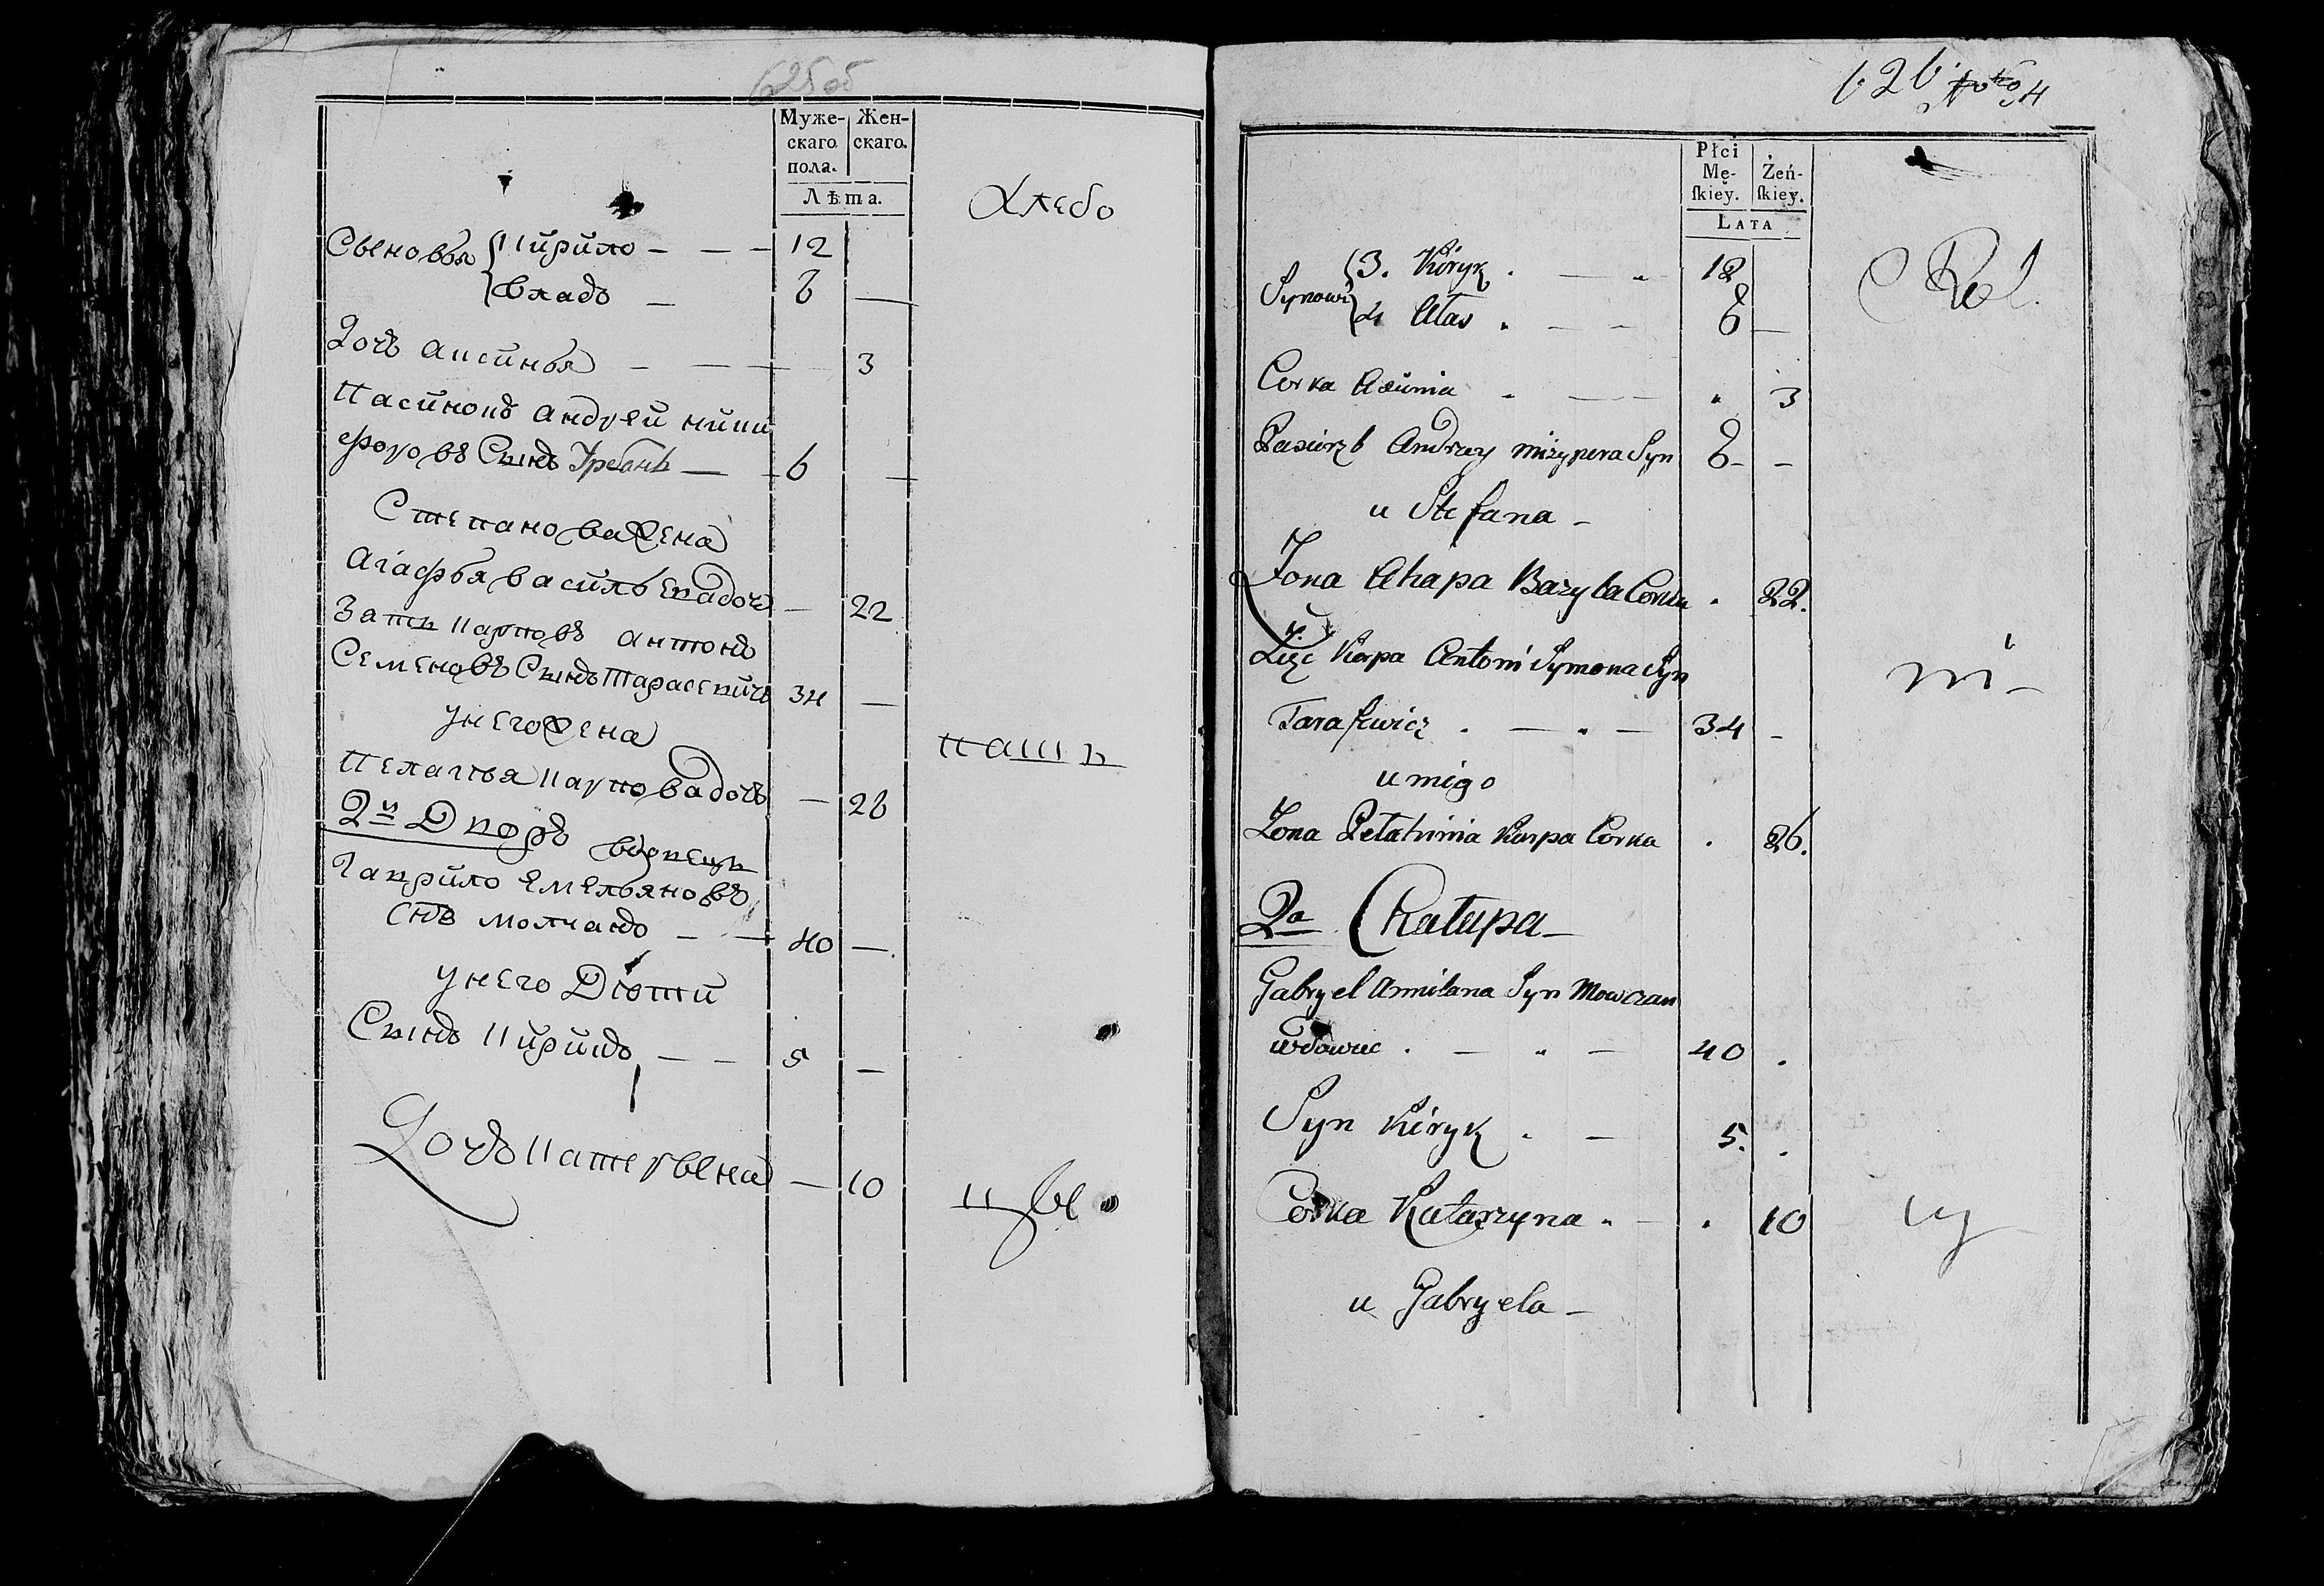 625об
Муже- Жен-
скаго скаго.
пола.
Лѣта.
Хлебо
Сыновья Кирило — — — 12
владъ — 6 —
Дочь аксинья — — — 3
Пасинокъ андрей ники
форовъ Сынъ Урбанъ — 6 —
Степанова жена
Агафья василь евадочь — 22
Зять карповъ антонъ
Семеновъ Сынъ тарасевичъ 34 —
унего жена
паш
Пелагья карпова дочь — 26
2й Дворъ
Гаврило Емельяновъ
Снъ молчанъ — — 40 —
унего Дѣти
Сынъ Кирилъ — — 5 —
Дочь катерына — 10
цы
626
Płci
Mę- Żeń-
skiey. skiey.
LATA
Rol.
3. Kiryk . — „ 12
Synowi
4 Ułas . — — 6 —
Corka Axiunia . — — „ 3
Pasierzb Andrzey Syn 6 - -
u Stefana -
Żona Ahapa Bazyla Corka . 22.
Zięc Karpa Antoni Symona Syn
ni-
Tarasewicz . — „ — 34 -
u niego
Żona Pełahinia Karpa Corka . 26.
2a Chałupa -
Gabryel Amilana Syn Mowczan
wdowiec . — „ — 40 .
Syn Kiryk . — 5. .
Corka Katarzyna „ — . 10
cy
u Gabryela -